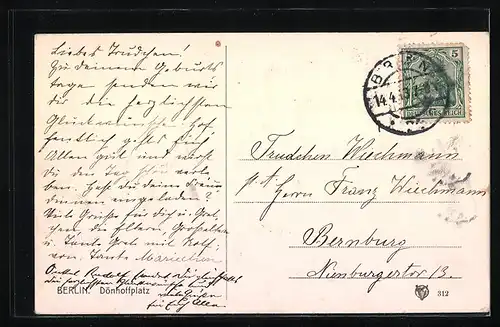 Liebes Trudchen!
Zu deinem Geburts
tage senden wir
dir die herzlichsten
Glückwünsche, hof-
fentlich gehts Euch
Allen gut und wirst
du den Tag schön verle
ben. Hast du deine Freun
dinnen eingeladen?
Viele Grüße für dich u. Gret-
chen, die Eltern, Großeltern
u. Tante Greti mit Rolf,
von Tante Mariechen
Onkel Rudolf sendet dir gleichfalls
die herzlichsten Glückwünsche und
viele Grüße
für Euch Alle.
BERLIN. Dönhoffplatz
BERLIN
14.4.
5
DEUTSCHES REICH
Trudchen Wiechmann
Herrn Franz Wiechmann
Bernburg
Nienburgerstr 13.
312